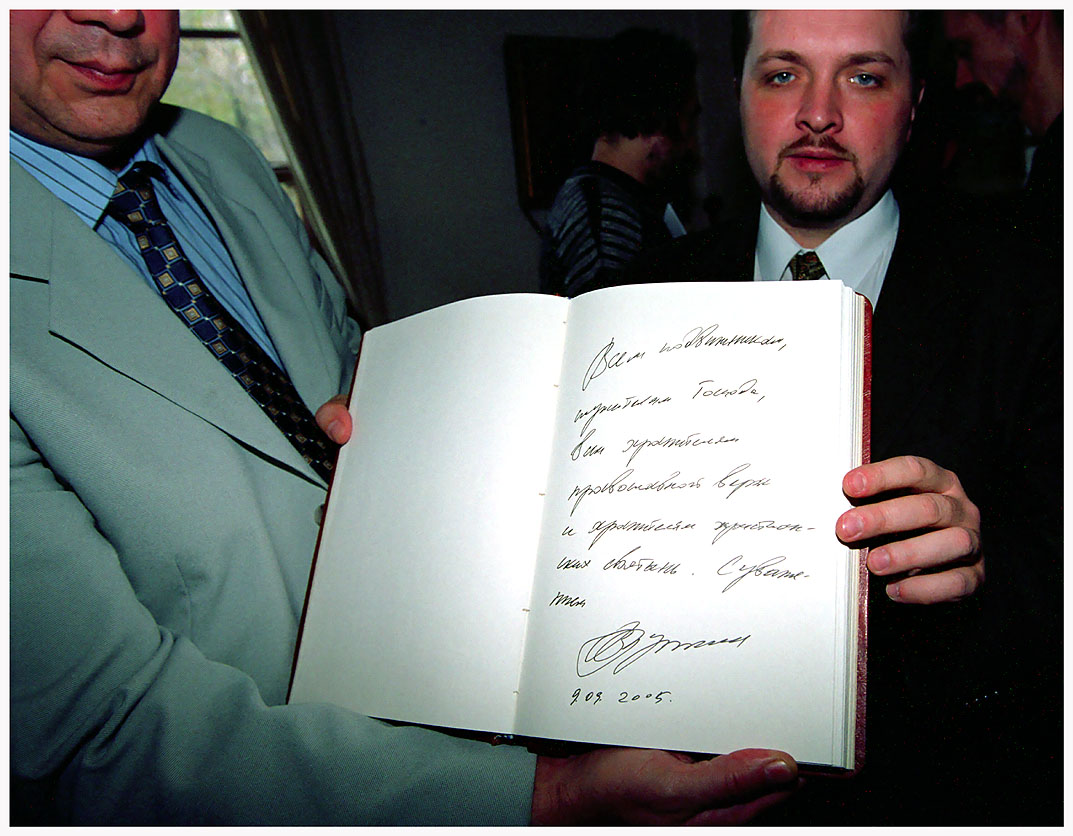 Всем подвижникам,
служителям Господа,
всем хранителям
православной веры
и хранителям христиан-
ских святынь. С уваже-
нием
В Путин
9.09.2005.